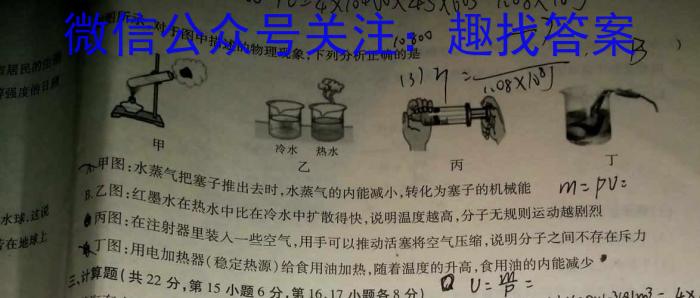 微信公众号关注：趣找答案
图所示，对于图中描述的物理现象，下列分析正确的是
B
冷水 热水
甲 乙 丙 丁
甲图：水蒸气把塞子推出去时，水蒸气的内能减小，转化为塞子的机械能
m=ρV=
B.乙图：红墨水在热水中比在冷水中扩散得快，说明温度越高，分子无规则运动越剧烈
丙图：在注射器里装入一些空气，用手可以推动活塞将空气压缩，说明分子之间不存在斥力
丁图：用电加热器（稳定热源）给食用油加热，随着温度的升高，食用油的内能减少
三、计算题（共22分，第15小题6分，第16、17小题各8分）
水球，这说
在地球上